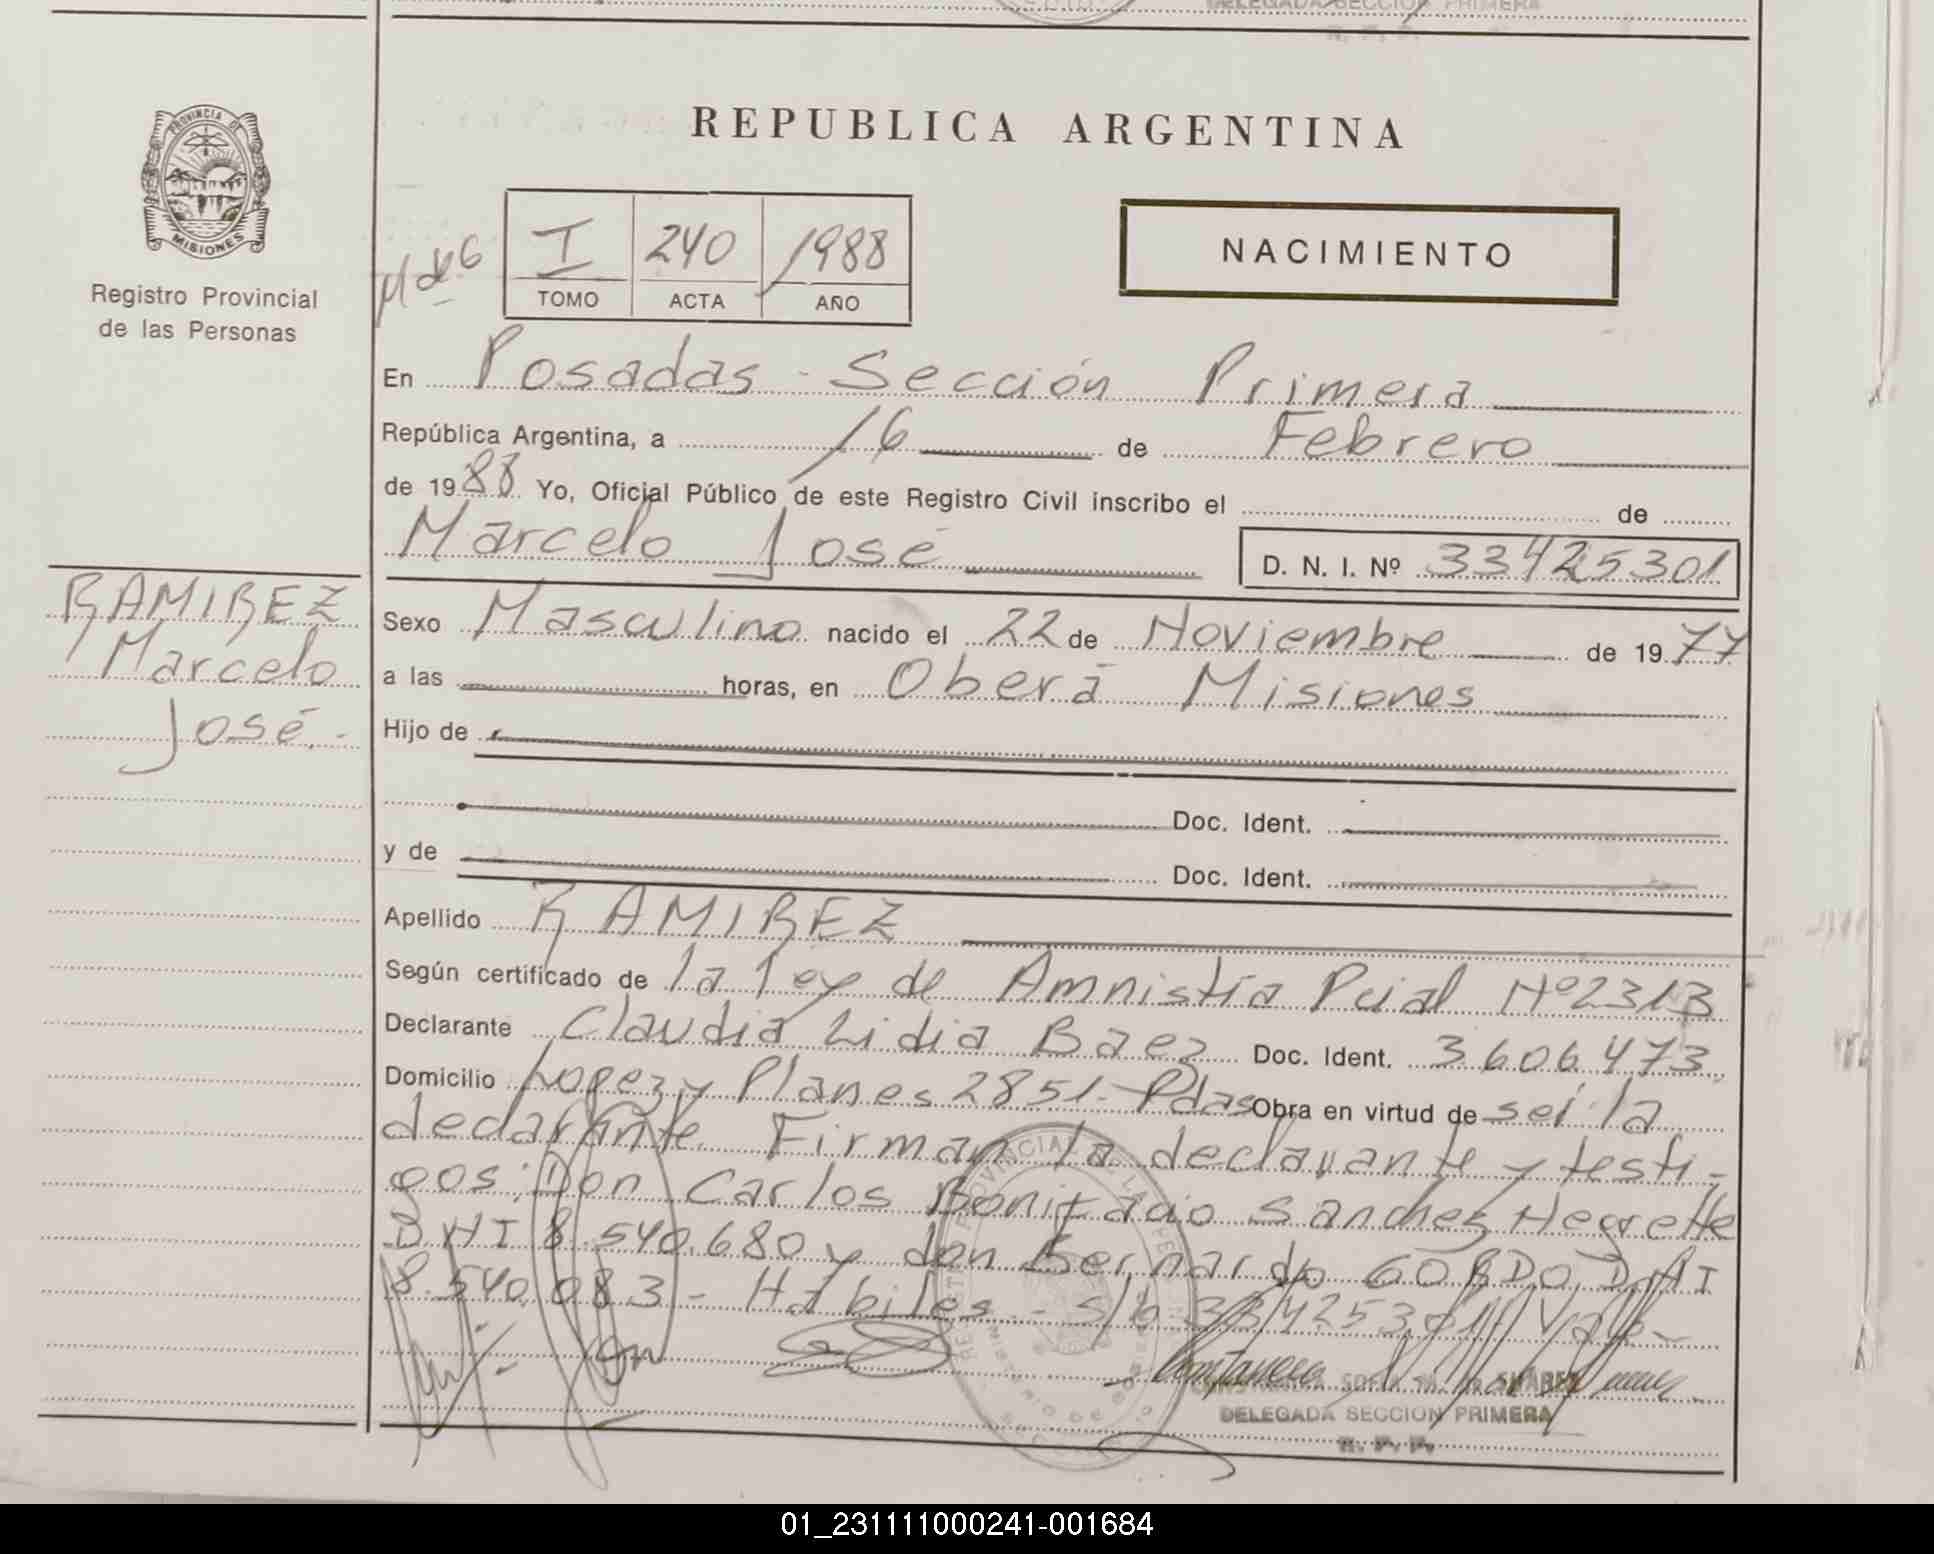 DELEGADA SECCION PRIMERA
R. P. P.
PROVINCIA DE
MISIONES
Registro Provincial
de las Personas
REPUBLICA ARGENTINA
I 240 1988
TOMO ACTA AÑO
NACIMIENTO
En Posadas - Sección Primera
República Argentina, a 16 de Febrero
de 1988 Yo, Oficial Público de este Registro Civil inscribo el de
Marcelo José D. N. I. Nº 33425301
RAMIREZ
Marcelo
José.-
Sexo Masculino nacido el 22 de Noviembre de 1977
a las horas, en Oberá Misiones
Hijo de
Doc. Ident.
y de Doc. Ident.
Apellido RAMIREZ
Según certificado de la Ley de Amnistía Pcial Nº 2313
Declarante Claudia Lidia Baez Doc. Ident. 3.606.473
Domicilio Lopez y Planes 2851.- Pdas Obra en virtud de ser la
declarante. Firman la declarante y testi-
gos: Don Carlos Bonifacio Sanchez Negrette
DNI 8.540.680 y don Bernardo GORDO D.N.I
8.540.083 - Hábiles - s/b 33425301 Vale-
SOFIA SUAREZ
DELEGADA SECCION PRIMERA
R. P. P.
01_231111000241-001684